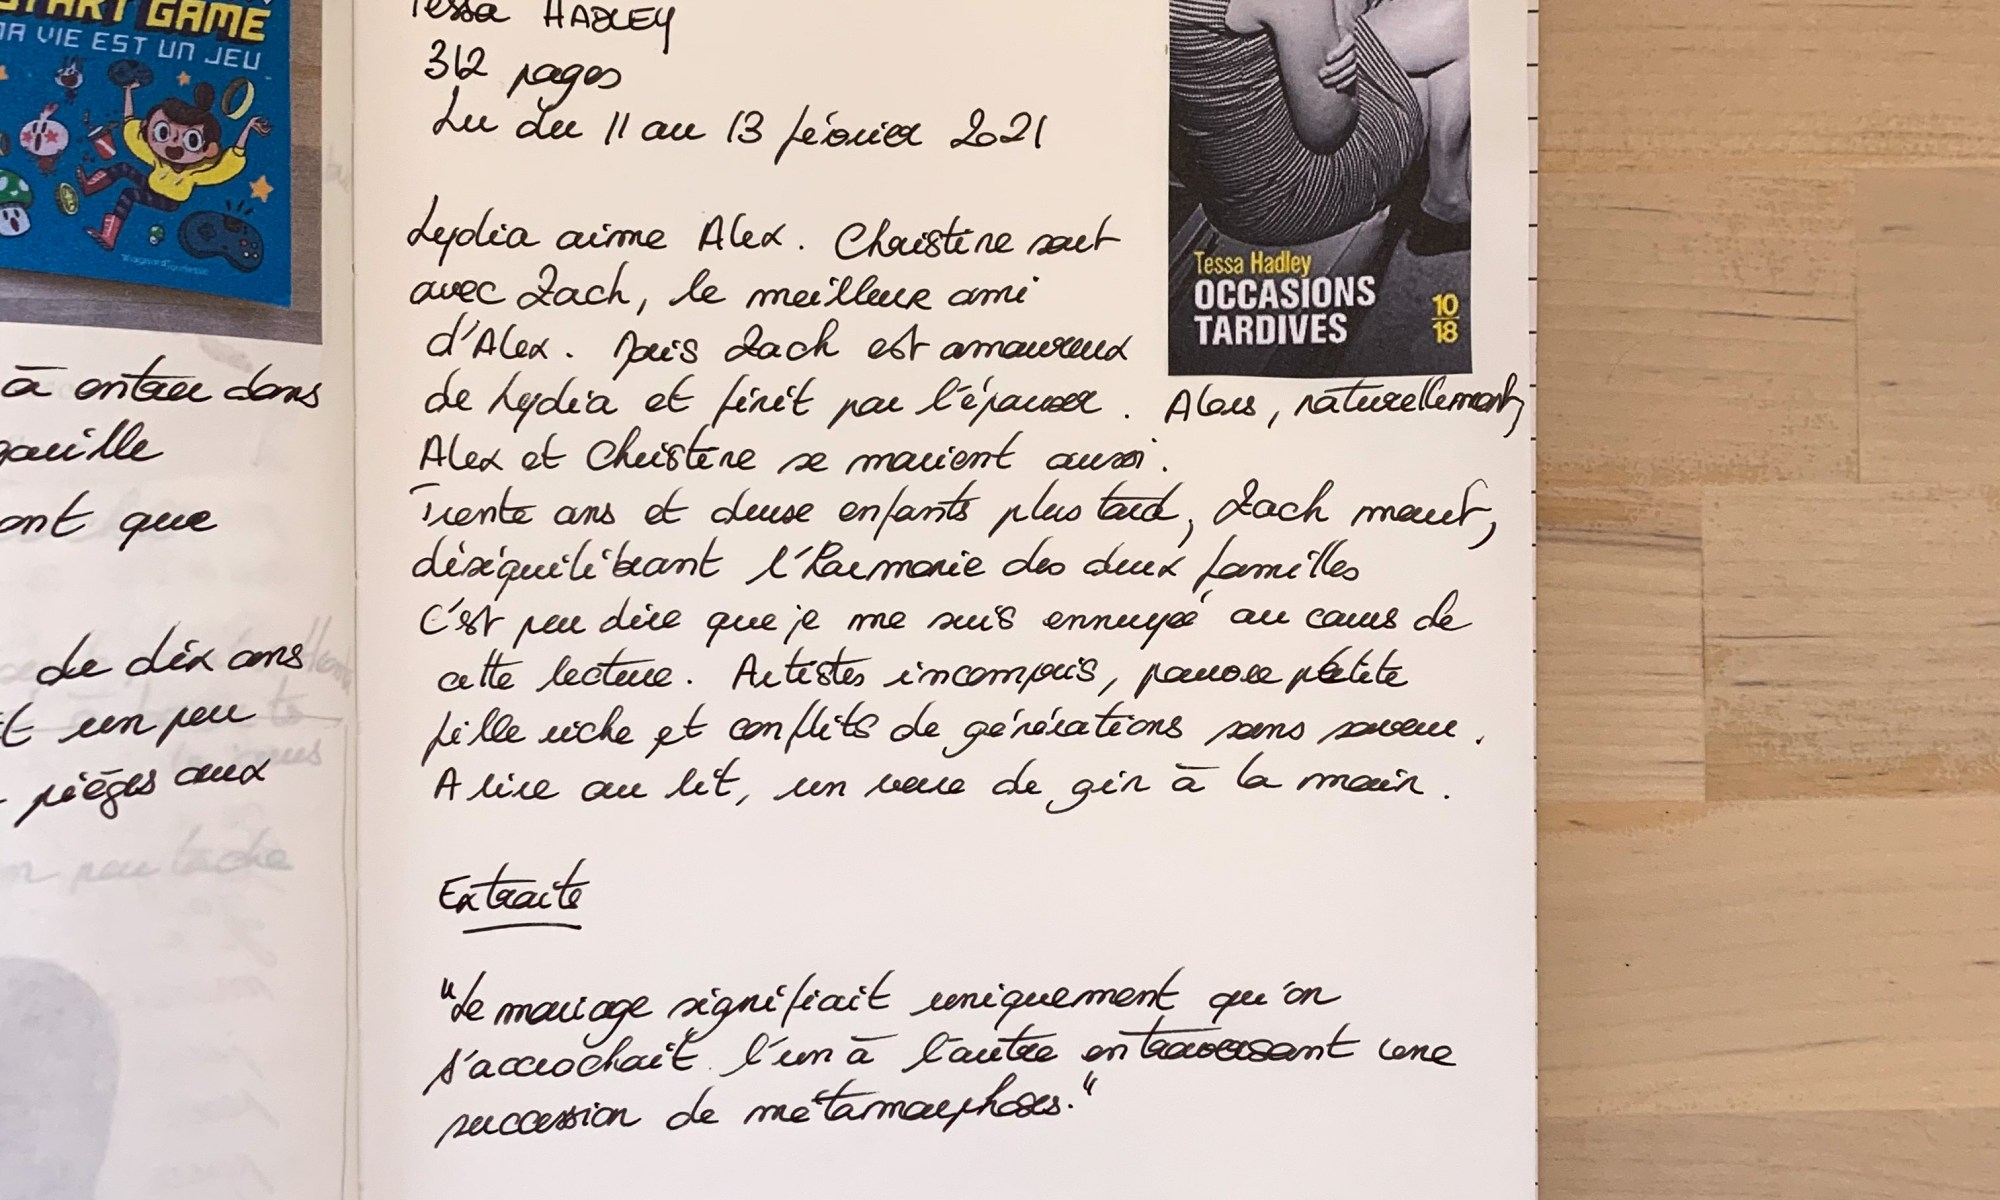 START GAME
MA VIE EST UN JEU
à entrer dans
gouille
ant que
de dix ans
t un peu
pièges aux
Tessa HADLEY
312 pages
Lu du 11 au 13 février 2021
Tessa Hadley
OCCASIONS
TARDIVES
10
18
Lydia aime Alex. Christine sort
avec Zach, le meilleur ami
d'Alex. Mais Zach est amoureux
de Lydia et finit par l'épouser. Alors, naturellement,
Alex et Christine se marient aussi.
Trente ans et deux enfants plus tard, Zach meurt,
déséquilibrant l'harmonie des deux familles
C'est peu dire que je me suis ennuyée au cours de
cette lecture. Artistes incompris, pauvre petite
fille riche et conflits de générations sans saveur.
A lire au lit, un verre de gin à la main.
Extraits
"Le mariage signifiait uniquement qu'on
s'accrochait l'un à l'autre en traversant une
succession de métamorphoses."